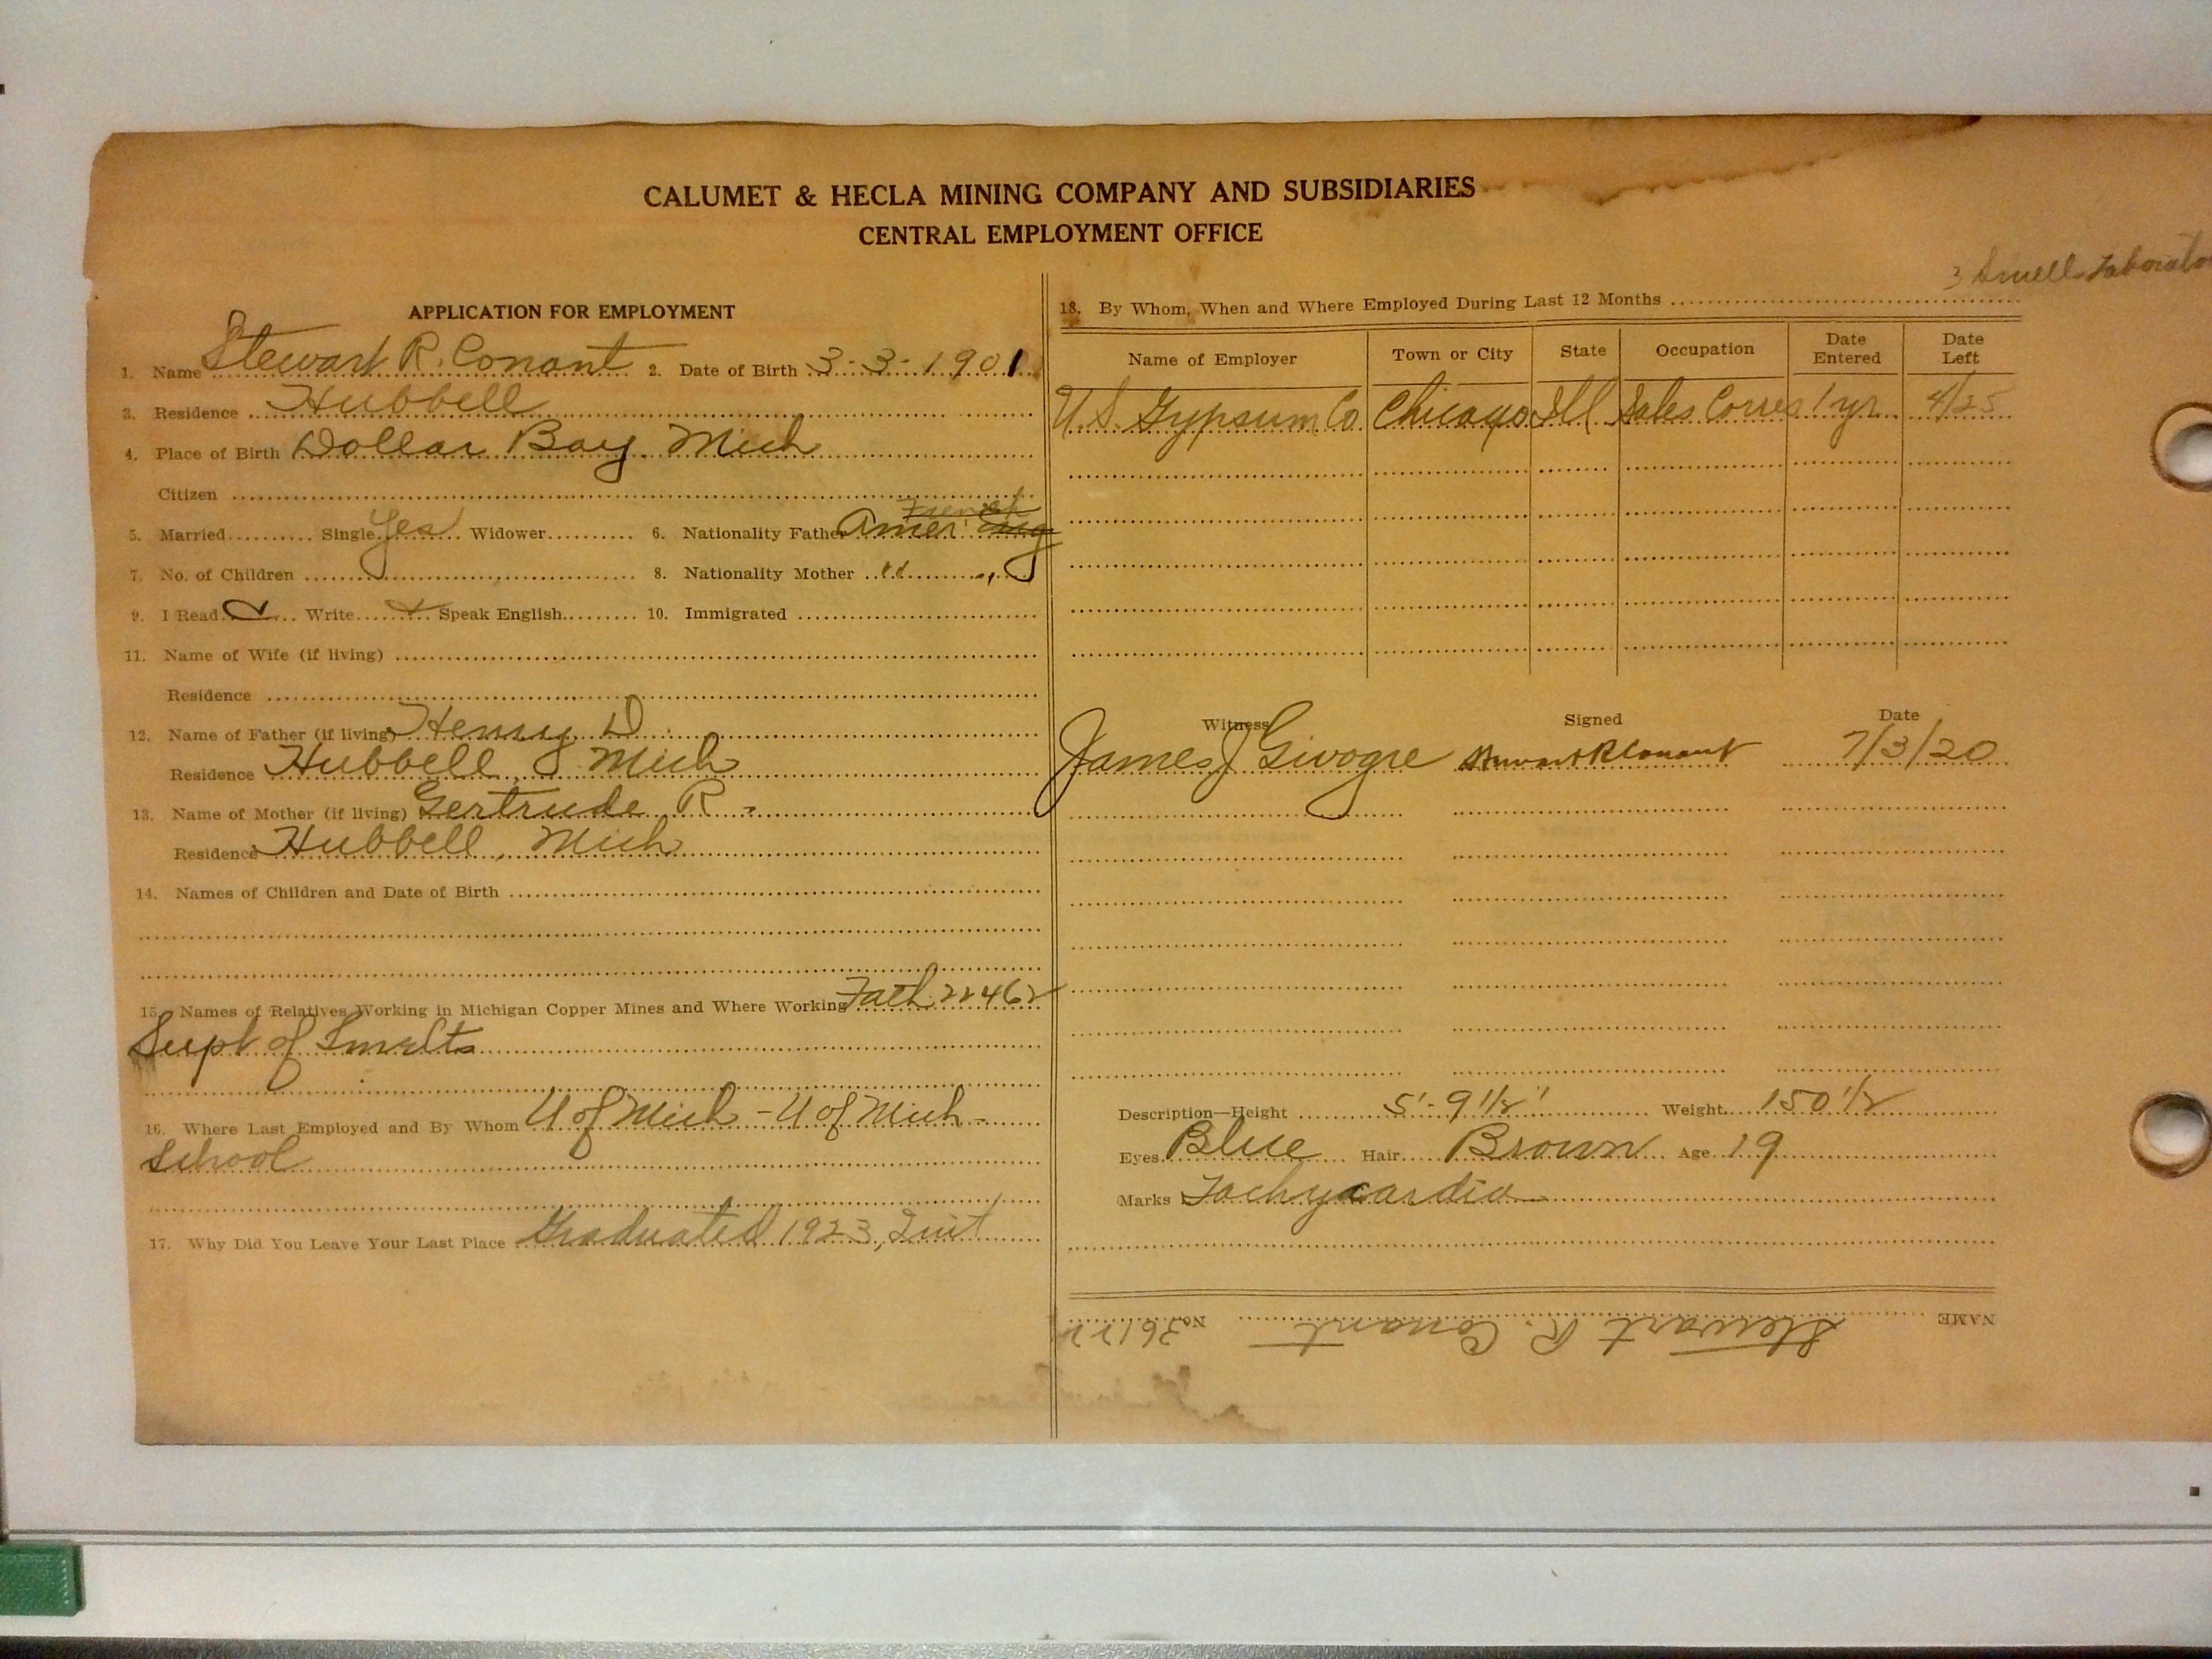 CALUMET & HECLA MINING COMPANY AND SUBSIDIARIES
CENTRAL EMPLOYMENT OFFICE
APPLICATION FOR EMPLOYMENT
1. Name Stewart R. Conant 2. Date of Birth 3-3-1901
3. Residence Hubbell
4. Place of Birth Dollar Bay. Mich
Citizen
5. Married Single Yes Widower 6. Nationality Father Amer French Eng
7. No. of Children 8. Nationality Mother " "
9. I Read ✓ Write ✓ Speak English 10. Immigrated
11. Name of Wife (if living)
Residence
12. Name of Father (if living) Henry D.
Residence Hubbell, Mich
13. Name of Mother (if living) Gertrude R.
Residence Hubbell, Mich
14. Names of Children and Date of Birth
15. Names of Relatives Working in Michigan Copper Mines and Where Working Fath. 22462
Supt of Smelts
16. Where Last Employed and By Whom U of Mich - U of Mich -
School
17. Why Did You Leave Your Last Place Graduated 1923, Quit
3 Smelt
18. By Whom, When and Where Employed During Last 12 Months
Name of Employer Town or City State Occupation Date Entered Date Left
U.S. Gypsum Co. Chicago Ill Sales Corres 1 yr. 4/25
Witness Signed Date
James J Givogre Stewart R Conant 7/3/20
Description—Height 5'-9 1/2" Weight 150 1/2
Eyes Blue Hair Brown Age 19
Marks Tachycardia
NAME Stewart R. Conant No. 36122